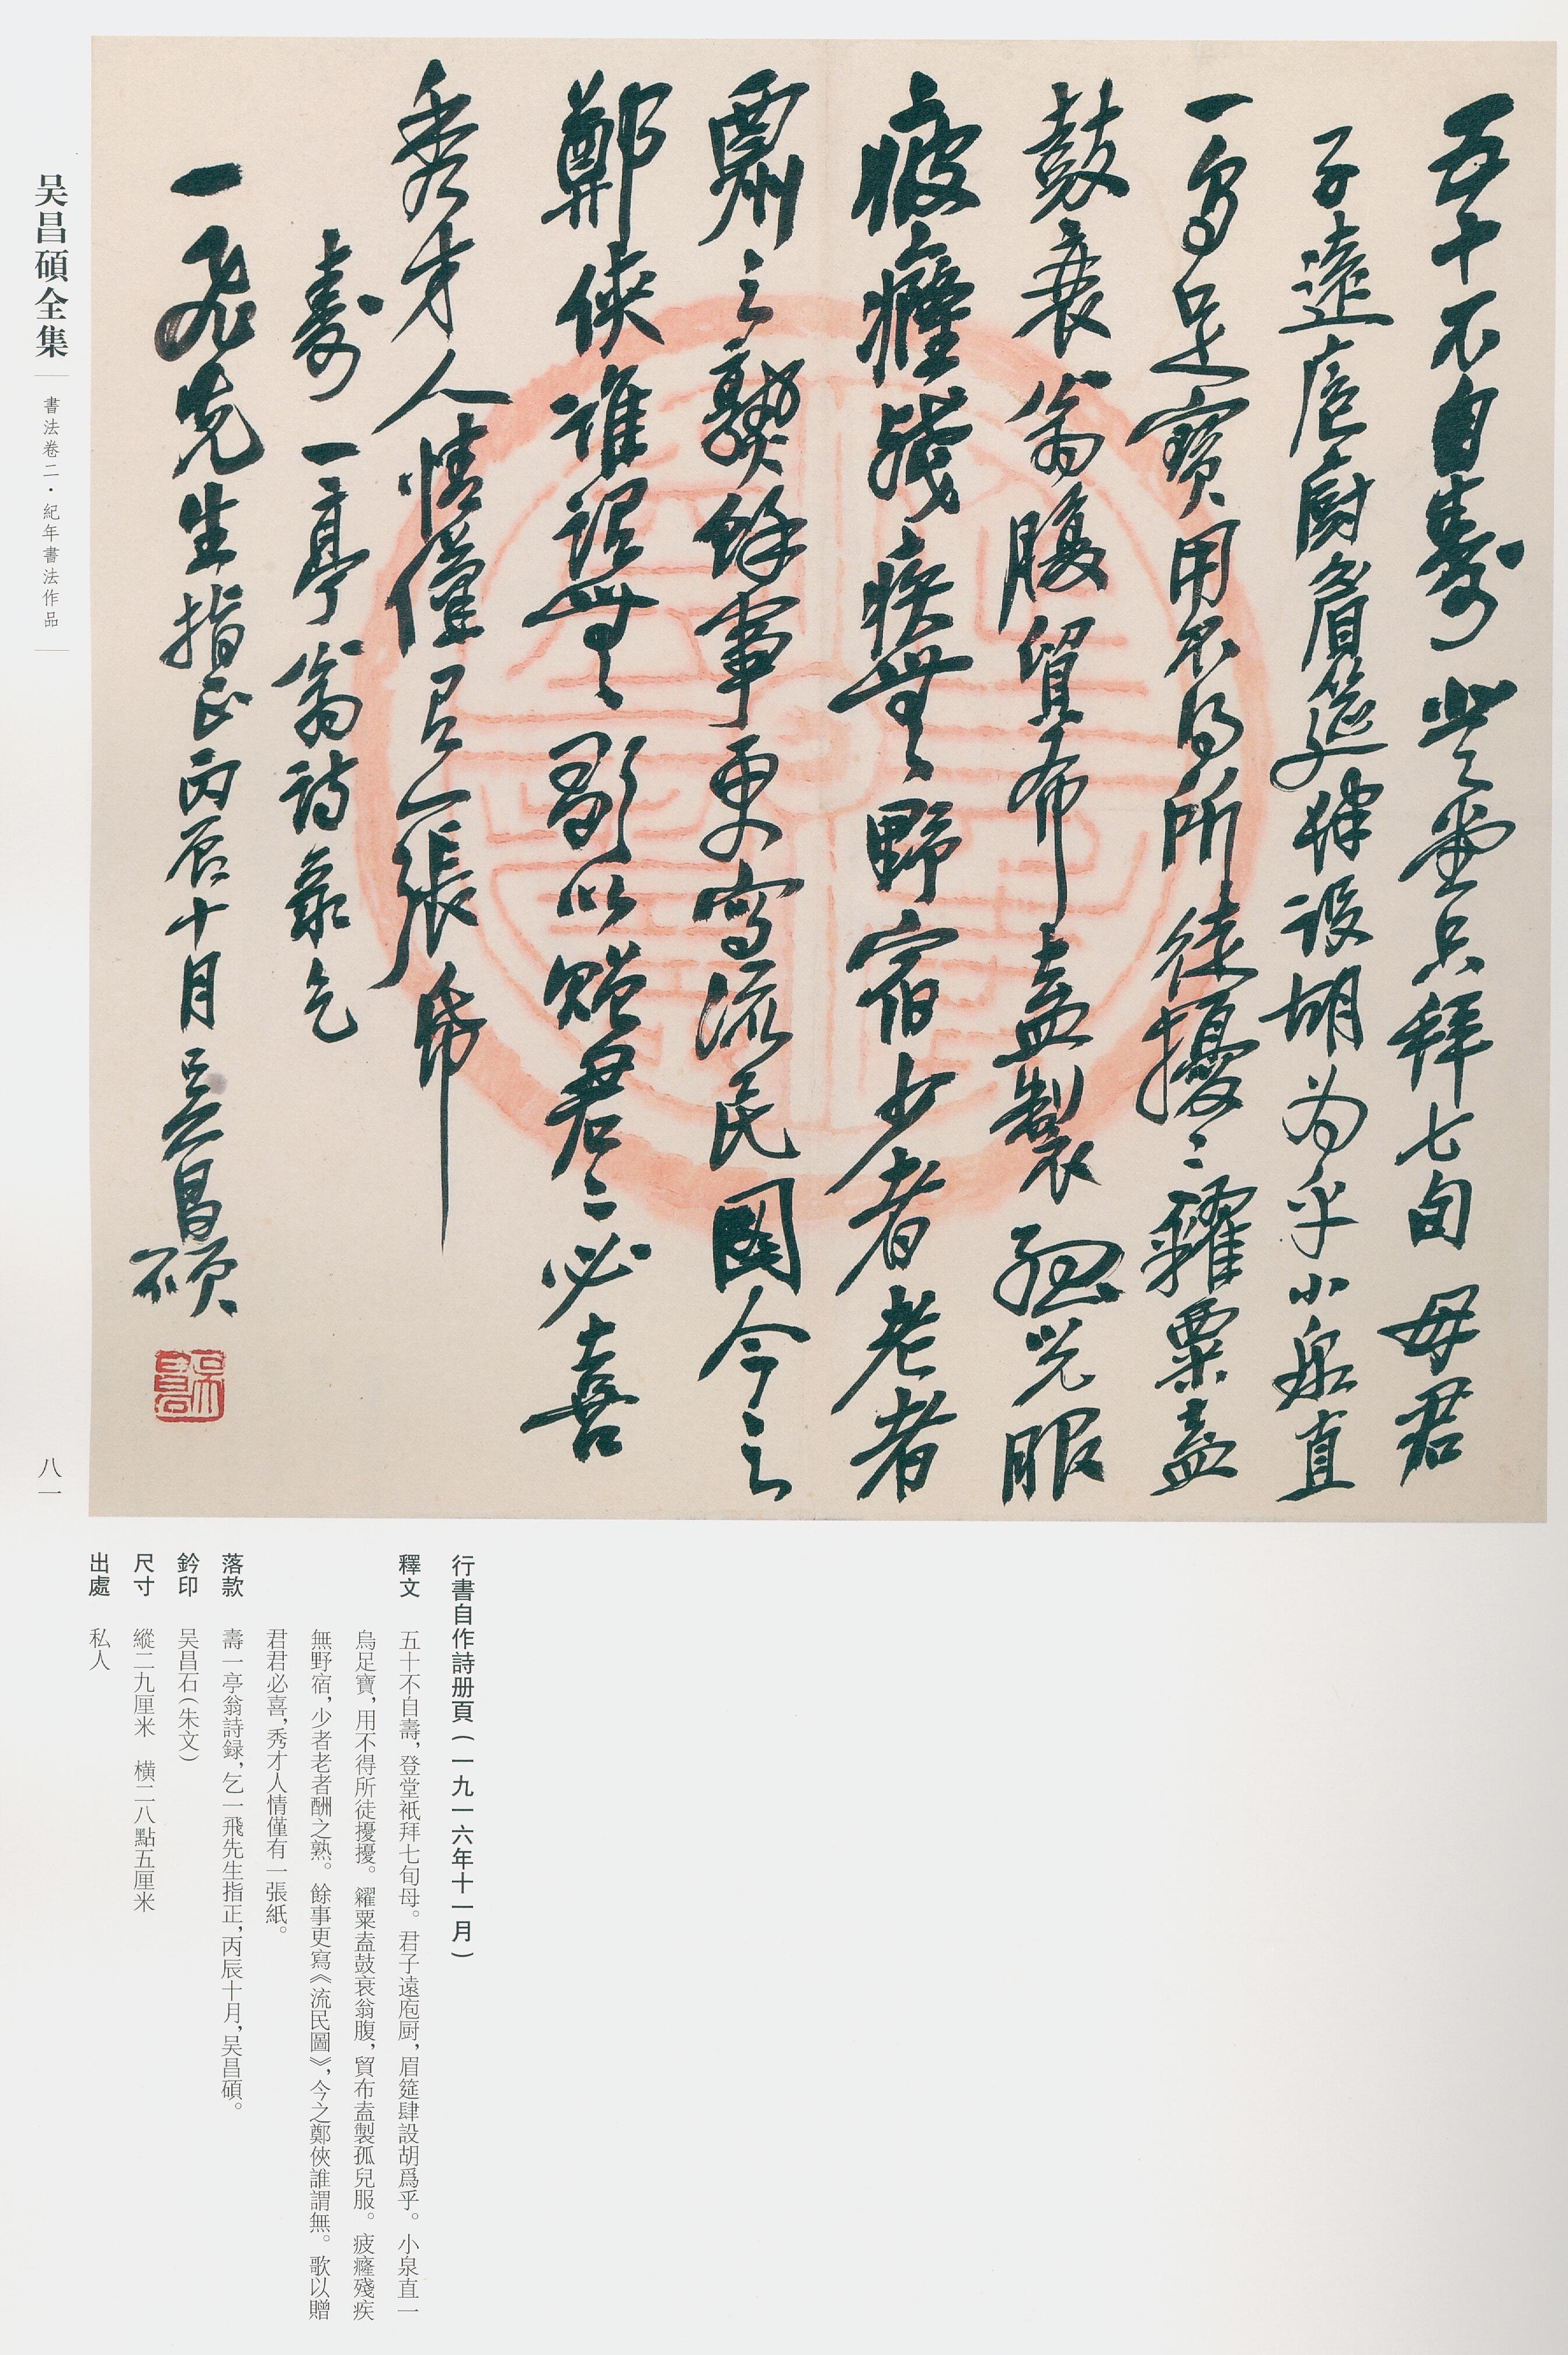 五十不自壽登堂只拜七旬母君
子遠庖廚眉筵肆設胡为乎小泉直
一烏足寶用不得所徒擾〻糴粟盍
鼓衰翁腹貿布盍製孤兒服
疲癃殘疾無野宿少者老者
酬之熟餘事更寫流民圖今之
鄭俠誰謂無歌以贈君〻必喜
秀才人情僅有一張紙
壽一亭翁詩录乞
一飛先生指正丙辰十月吴昌碩
吳昌石
吴昌碩全集
書法卷二·紀年書法作品
八一
行書自作詩册頁(一九一六年十一月)
釋文 五十不自壽,登堂衹拜七旬母。君子遠庖厨,眉筵肆設胡爲乎。小泉直一
烏足寶,用不得所徒擾擾。糴粟盍鼓衰翁腹,貿布盍製孤兒服。疲癃殘疾
無野宿,少者老者酬之熟。餘事更寫《流民圖》,今之鄭俠誰謂無。歌以贈
君君必喜,秀才人情僅有一張紙。
落款 壽一亭翁詩録,乞一飛先生指正,丙辰十月,吴昌碩。
鈐印 吴昌石(朱文)
尺寸 縱二九厘米 横二八點五厘米
出處 私人